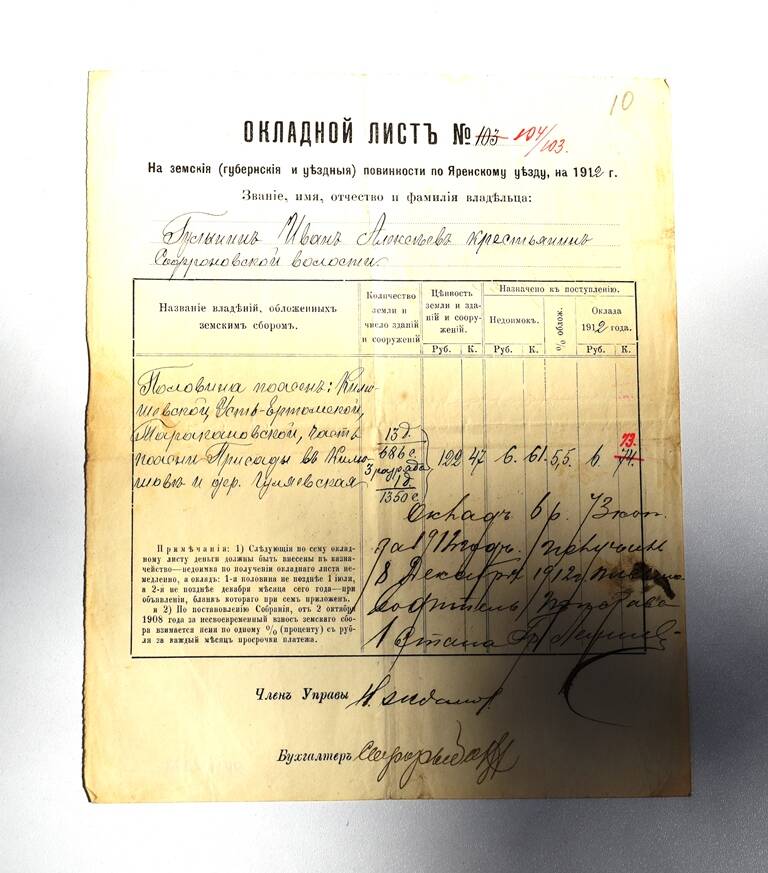 10
ОКЛАДНОЙ ЛИСТЪ № 103 104/103.
На земскія (губернскія и уѣздныя) повинности по Яренскому уѣзду, на 1912 г.
Званіе, имя, отчество и фамилія владѣльца:
Иванъ Алексѣевъ крестьянинъ
Софроновской волости
Названіе владѣній, обложенныхъ земскимъ сборомъ.
Количество земли и число зданій и сооруженій
Цѣнность земли и зданій и сооруженій.
Руб. К.
Назначено къ поступленію.
Недоимокъ.
Руб. К.
% облож.
Оклада 1912 года.
Руб. К.
Половина пожень:
Усть-Ертомской,
Таракановской, часть
пожни Присады въ
и дер. Гуляевская
13 д.
686 с.
3 разряда
1 д.
1350 с.
122 47 6. 61. 5,5. 6. 74. 73.
Окладъ 6 р. 73 коп.
за 1912 годъ получилъ
8 Декабря 1912 г.
1 стана
Примѣчанія: 1) Слѣдующія по сему окладному листу деньги должны быть внесены въ казначейство—недоимка по полученіи окладного листа немедленно, а окладъ: 1-я половина не позднѣе 1 іюля, а 2-я не позднѣе декабря мѣсяца сего года—при объявленіи, бланк котораго при семъ приложенъ.
и 2) По постановленію Собранія, отъ 2 октября 1908 года за несвоевременный взносъ земскаго сбора взимается пени по одному % (проценту) съ рубля за каждый мѣсяцъ просрочки платежа.
Членъ Управы
Бухгалтеръ